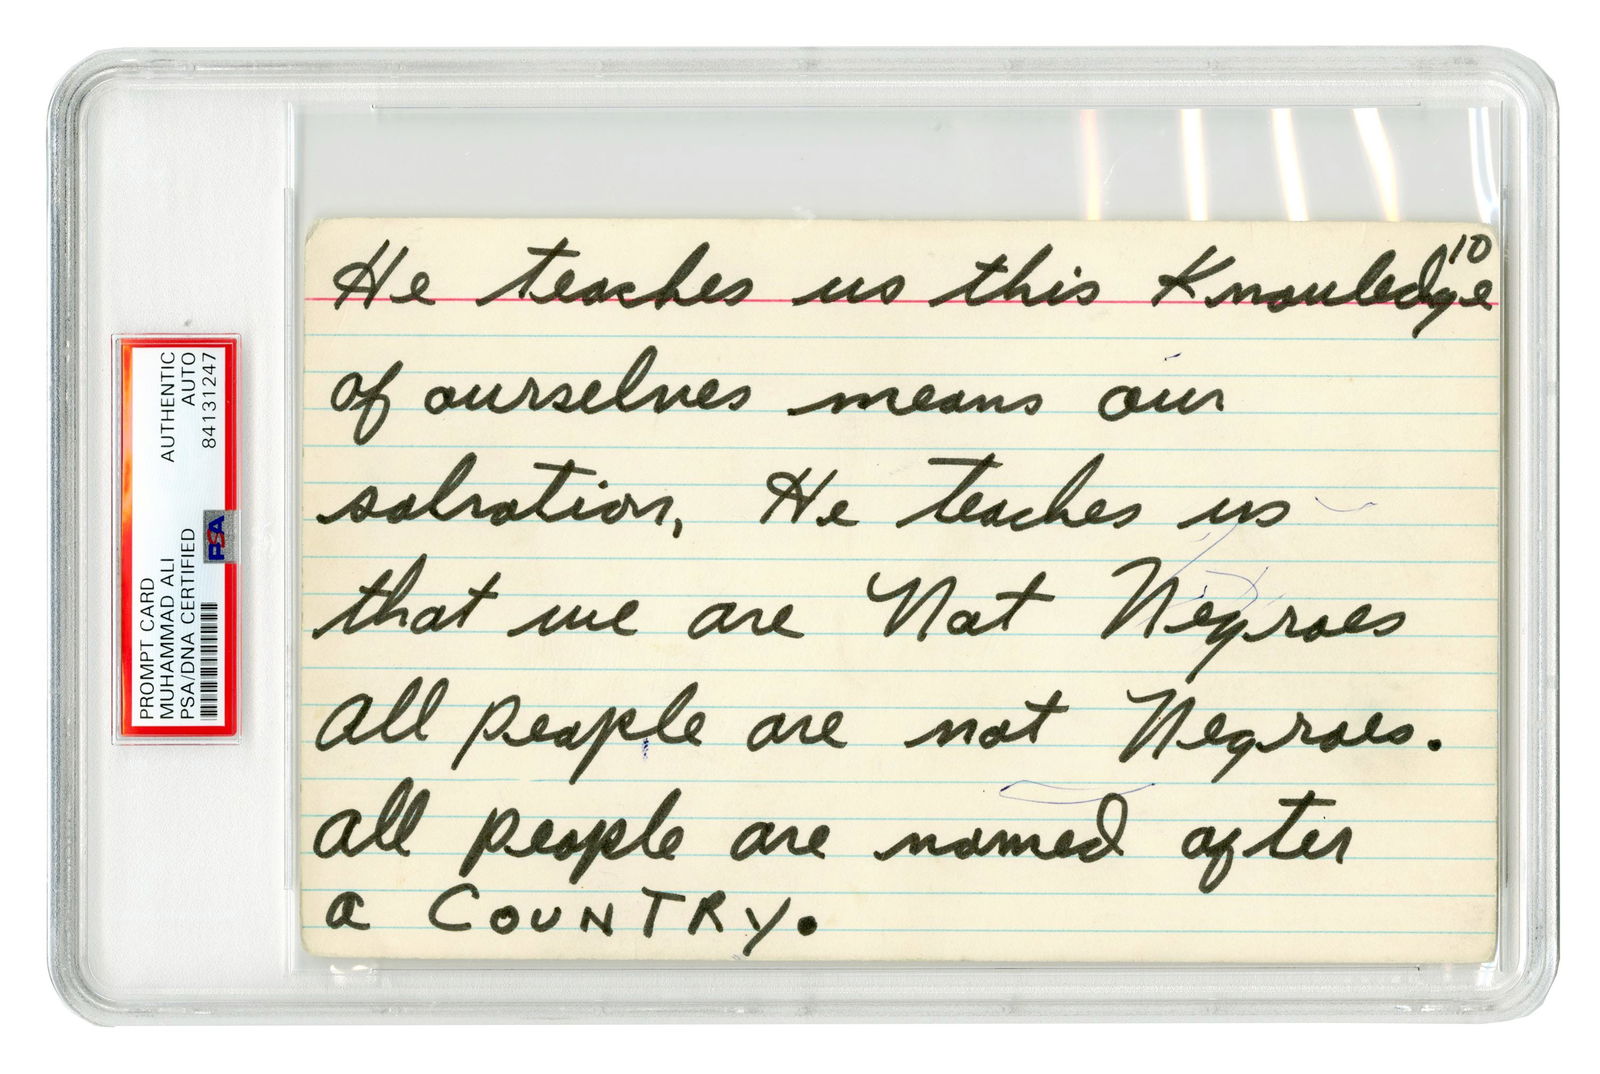 PROMPT CARD
MUHAMMAD ALI
PSA/DNA CERTIFIED
AUTHENTIC
AUTO
84131247
PSA
10
He teaches us this Knowledge
of ourselves means our
salvation, He teaches us
that we are Not Negroes
all people are not Negroes.
all people are named after
a COUNTRY.